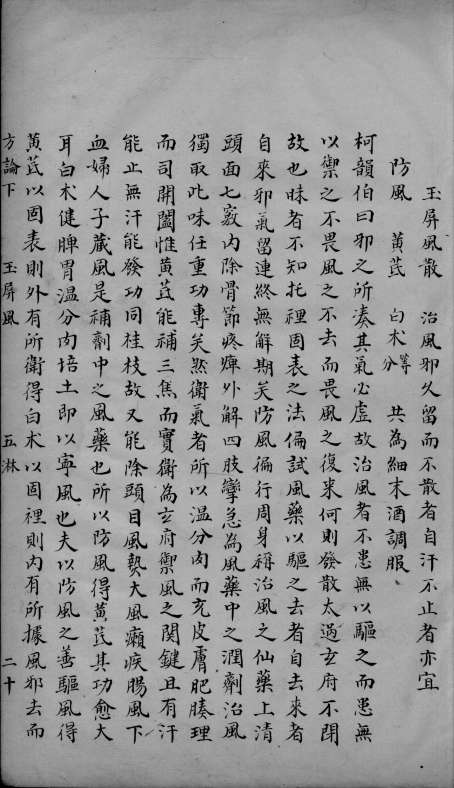 玉屏風散　治風邪久留而不散者自汗不止者亦宜
防風　黃芪　白术等分　共為細末酒調服
柯韻伯曰邪之所湊其氣必虛故治風者不患無以驅之而患無
以禦之不畏風之不去而畏風之復來何則發散太過玄府不閉
故也昧者不知托裡固表之法偏試風藥以驅之去者自去來者
自來邪氣留連終無解期矣防風偏行周身稱治風之仙藥上清
頭面七竅內除骨節疼痺外解四肢攣急為風藥中之潤劑治風
獨取此味任重功專矣然衛氣者所以溫分肉而充皮膚肥腠理
而司開闔惟黃芪能補三焦而實衛為玄府禦風之関鍵且有汗
能止無汗能發功同桂枝故又能除頭目風熱大風癩疾腸風下
血婦人子藏風是補劑中之風藥也所以防風得黃芪其功愈大
耳白术健脾胃溫分肉培土即以寧風也夫以防風之善驅風得
黃芪以固表則外有所衛得白术以固裡則內有所據風邪去而
方論下　玉屏風　五淋　二十